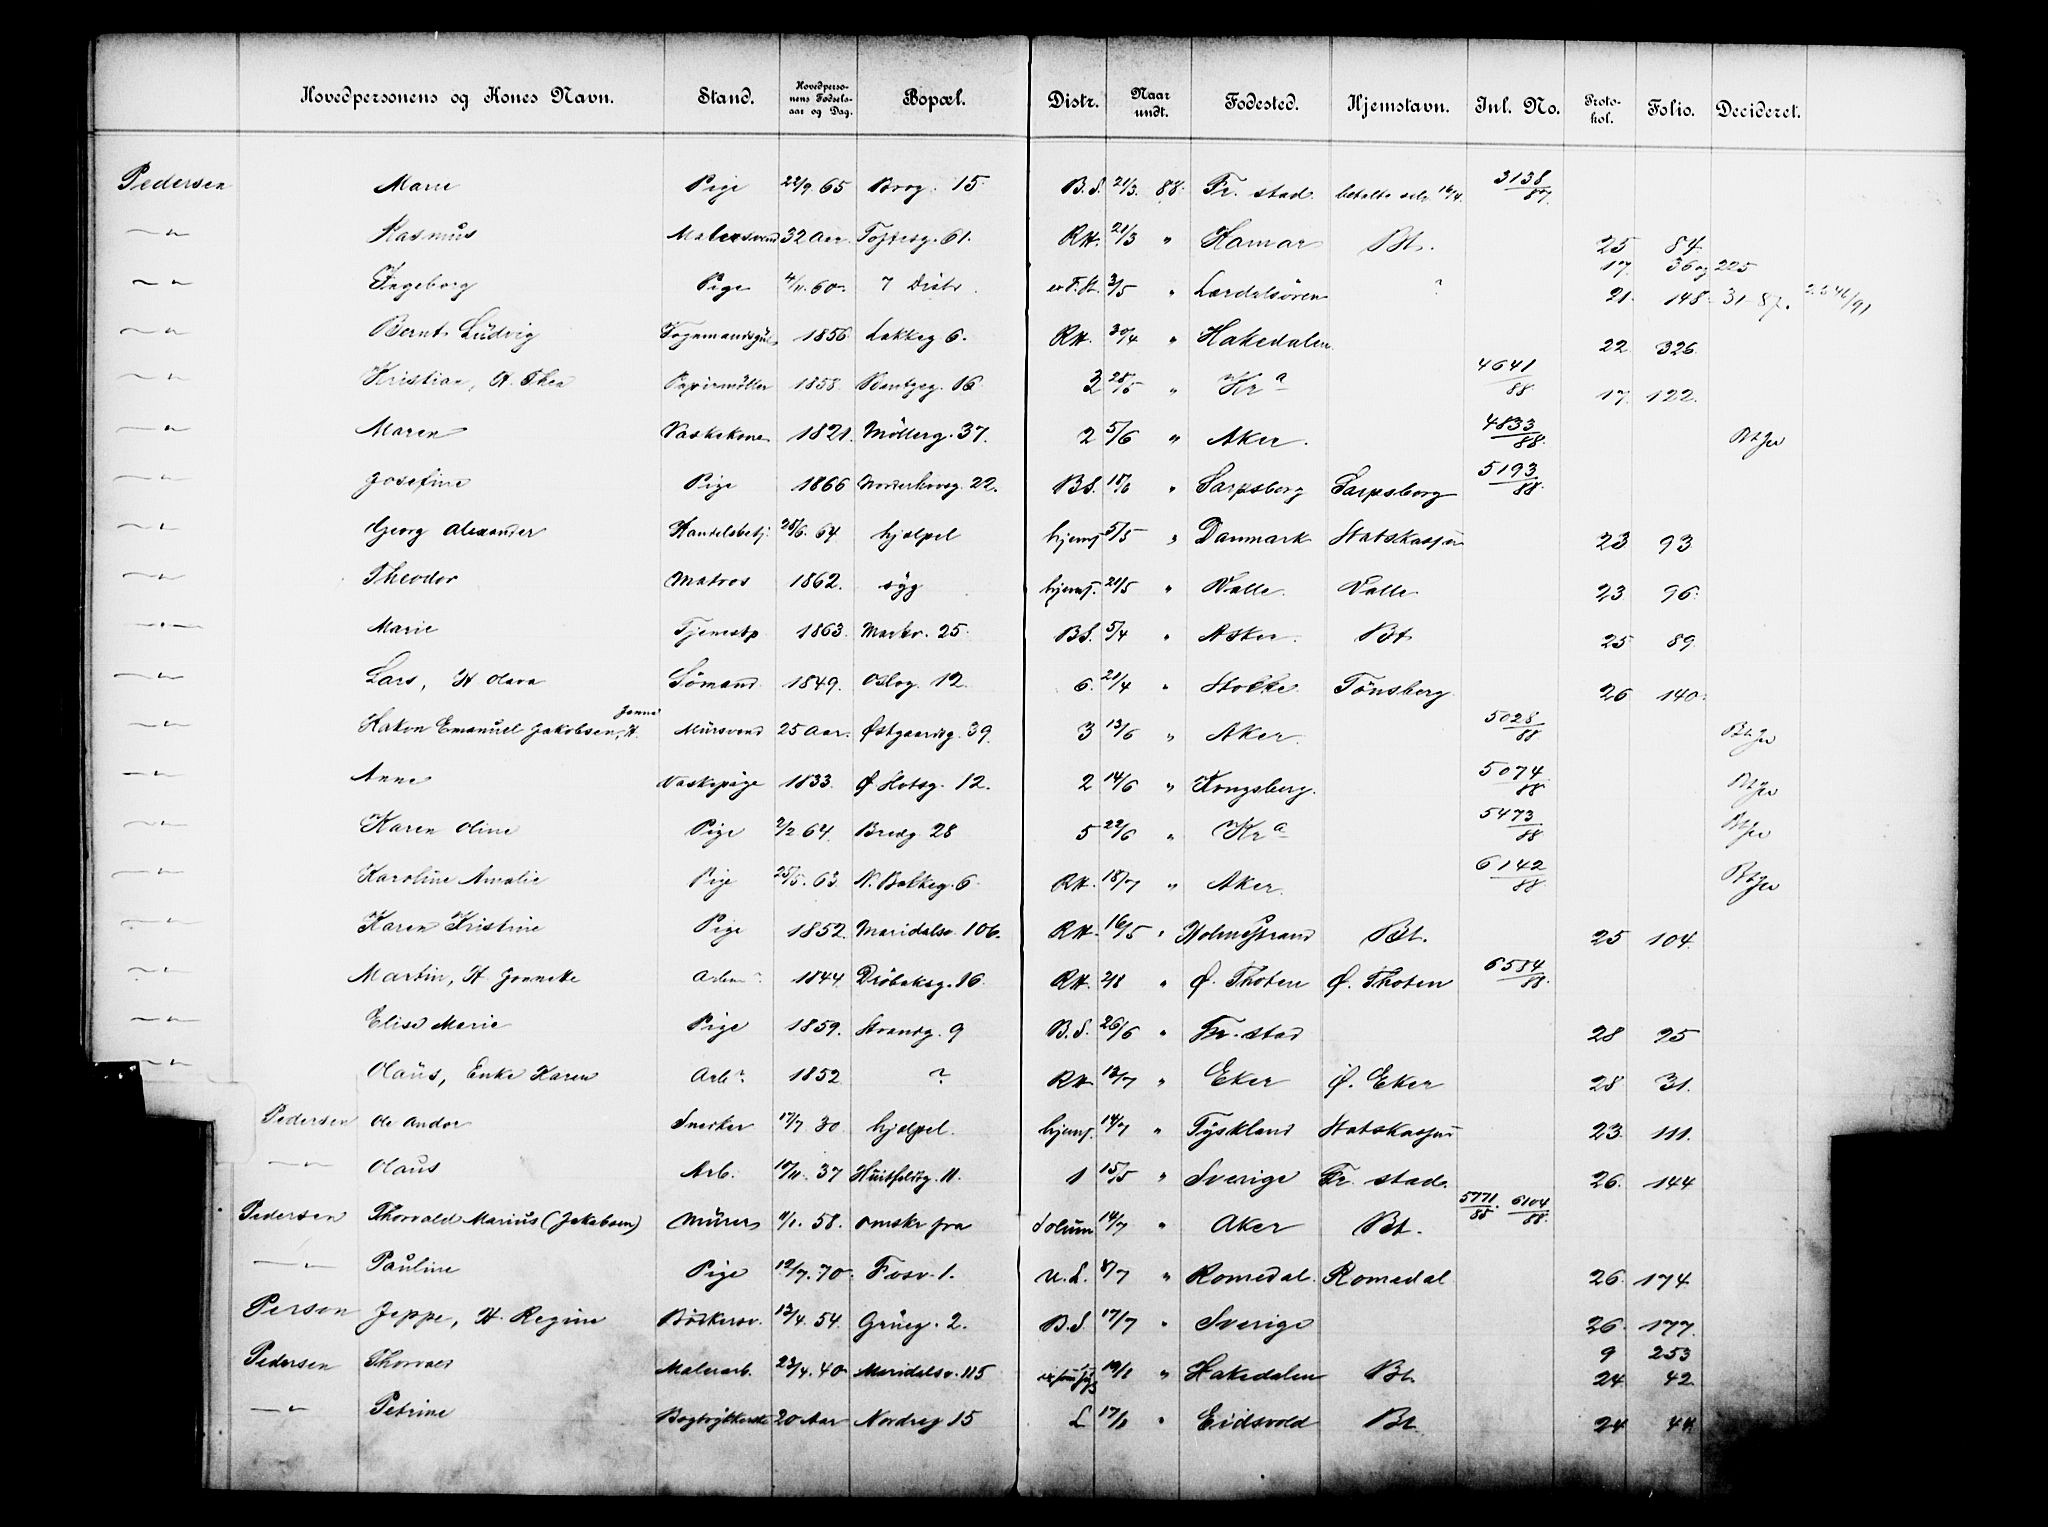 Hovedpersonens og Kones Navn. Stand. Hovedperso-nens Fødsels-aar og Dag. Bopæl. Distr. Naar undt. Fødested. Hjemstavn. Inl. No. Proto-kol. Folio. Decideret.
Pedersen Marie Pige 22/9 65 Brog. 15 B.S. 21/3 88 Fr. stad. 3138/87
—"— Rasmus Malersvend 32 Aar. Toftesg. 61. RH. 21/3 " Hamar Bt. 25 84
—"— Ingeborg Pige 4/11. 60 7 Distr. 3/5 " Lærdalsören ? 17. 36 og 225 21. 148 31. 87.
—"— Bernt Ludvig 1856 Lakkeg 6. RH. 30/4 " Hakedalen 22 326
—"— Kristian, H. Thea Papirmöller 1858 16 3 " Kra 4641/88 17. 122.
—"— Maren Vaskekone 1821. Möllerg. 37. 2 5/6 " Aker. 4833/88 Btjev
—"— Josefine Pige 1866 22. B.S. " Sarpsborg Sarpsborg 5193/88
—"— Georg Alexander Handelsbetj. 64 hjælpel hjemf 5/5 " Danmark Statskassen 23 93
—"— Theodor Matros 1862. syg hjemf. 21/5 " Valle Valle 23 96
—"— Marie Tjenestp 1863. Markv. 25. B.S. 5/4 " Asker. Bt 25 89
—"— Lars, H Olava Sömand 1849. Oslog. 12 6. 21/4 " Stokke Tönsberg 26 140
—"— Hakon Emanuel Jakobsen, H. Jenni Mursvend 25 Aar. Østgaardsg. 39. 3 13/6 " Aker. 5028/88 Btjev
—"— Anne Vaskepige 1833. Ø Slotsg. 12. 2 14/6 " Kongsberg. 5074/88 Btjev
—"— Karen Oline Pige 2/2 64. Bredg 28 5 22/6 " Kra 5473/88 Btjev
—"— Karoline Amalie Pige 25/5. 63. N. Bakkeg. 6 RH. 18/7 " Aker. 6142/88 Btjev
—"— Karen Kristine Pige 1852. Maridalsv. 106. RH. 16/5 " Holmestrand Bt. 25 104
—"— Martin, H Jenneke 1844 Dröbaksg. 16. RH. 2/8 " Ø. Thoten Ø. Thoten 6584/88
—"— Elise Marie Pige 1859. Strandg. 9 B.S. 26/6 " Fr. stad 28 25
—"— Olaus, Enke Karen Arbr. 1852 ? RH 12/7 " Eker Ø. Eker 28 31.
Pedersen Ole Andor Snedker 17/7 30 hjælpel. hjemf. 14/7 " Tyskland Statskassen 23. 111.
—"— Olaus Arb. 10/11. 37 Huitfeldsg. 11. 1 15/5 " Sverige Fr. stad. 26. 144
Pedersen Thorvald Marius (Jakobsen) Murer 58. omskr fra Solum 14/7 " Aker Bt. 5771/88. 6104/88.
—"— Pauline Pige 12/7. 70. Fosv. 1. U.L. 8/7 " Romedal. Romedal 26. 174.
Person Jeppe, H. Regine Bödkersv. 13/4. 54. Grüeg. 2. B.S. 17/7 " Sverige 26. 177.
Pedersen Thorvald Malerarb. 23/4. 40 Maridalsv. 115 " Hakedalen Bt. 9 253 24 42
—"— Petrine 20 Aar Nordreg 15 L 17/8 " Eidsvold Bt. 24 44